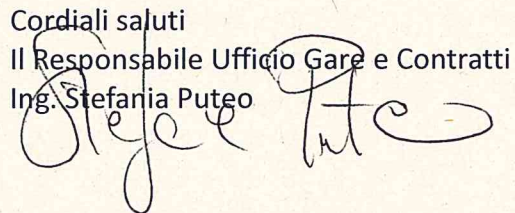 Cordiali saluti
Il Responsabile Ufficio Gare e Contratti
Ing. Stefania Puteo